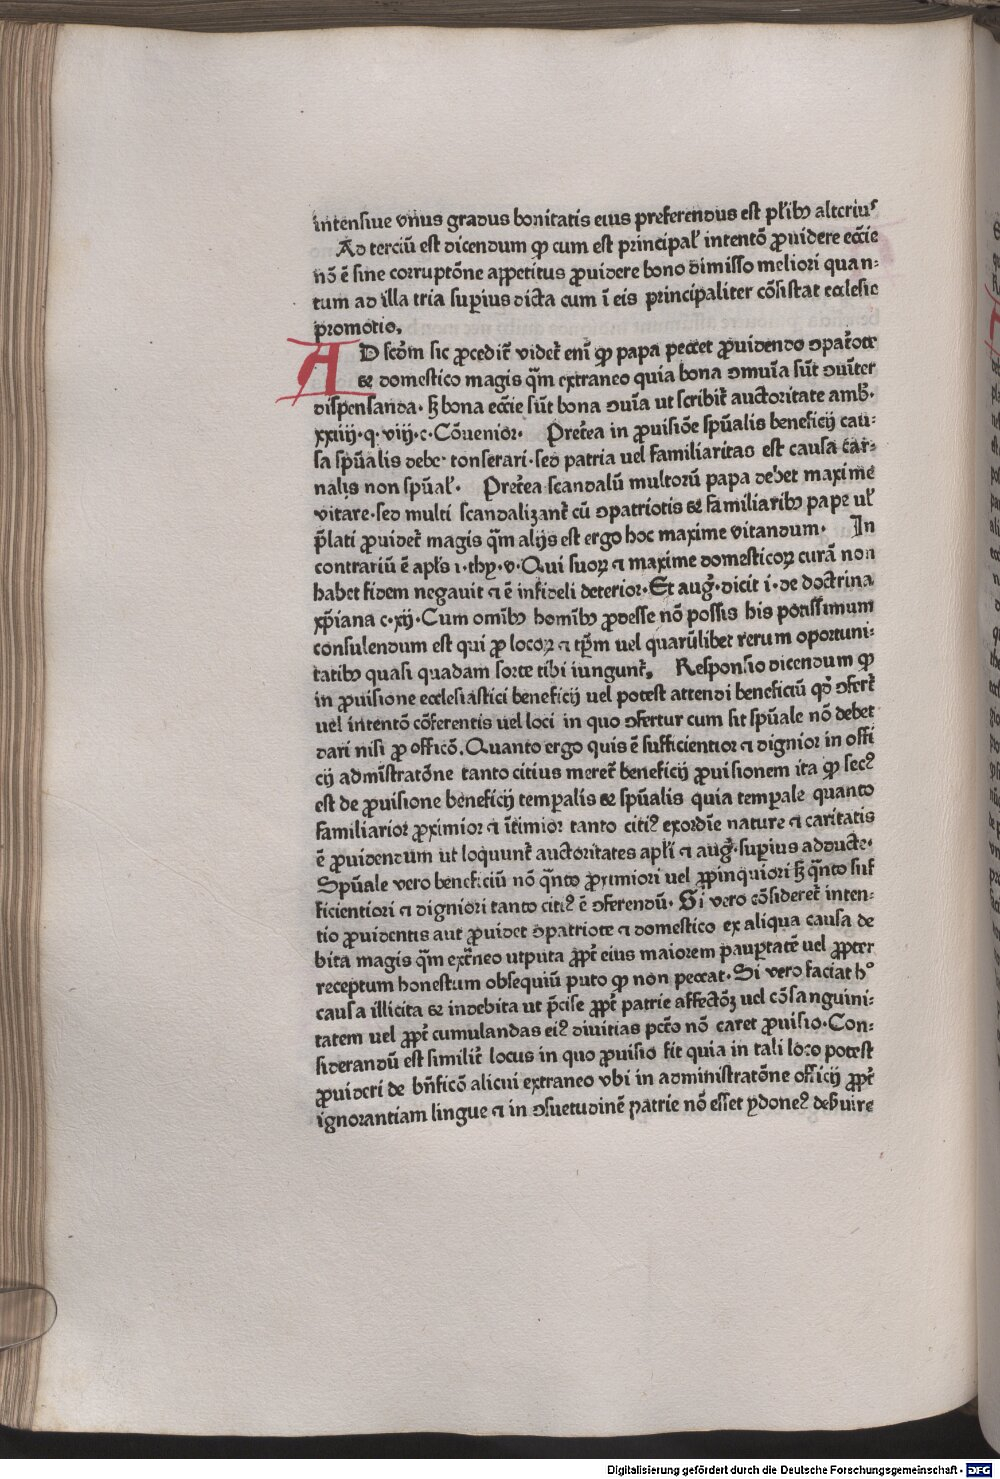 intensiue vnus gradus bonitatis eius preferendus est pl̄ibꝫ alteriuꝰ
Ad terciū est dicendum ꝙ cum est principal̓ intentō ꝓuidere ecc̄ie
nō ē sine corruptōne appetitus ꝓuidere bono dimisso meliori quan⸗
tum ad illa tria superius dicta cum ī eis principaliter cōsistat ecclesie
promotio.
AD scd̄m sic ꝓcedit̄ videt̄ eni̅ ꝙ papa peccet ꝓuidendo ꝯpat̄ote
⁊ domestico magis qm̄ extraneo quia bona ꝯmuīa sūt ꝯuīter
dispensanda. sꝫ bona ecc̄ie sūt bona ꝯuīa ut scribit̄ auctoritate amb̄.
xxiiij.q.viij.c.Cōuenior. Pret̄ea in ꝓuisiōe spūalis beneficij cau⸗
sa spūalis debet conferari.sed patria uel familiaritas est causa car⸗
nalis non spūal̓. Pret̄ea scandalū multorū papa debet maxime
vitare.sed multi scandalizant̄ cū ꝯpatriotis ⁊ familiaribꝫ pape ul̓
p̄lati ꝓuidet̄ magis qm̄ alijs est ergo hoc maxime vitandum. In
contrariū ē apl̄s i.thy.v.Qui suoꝝ ⁊ maxime domesticoꝝ curā non
habet fidem negauit ⁊ ē infideli deterior.Et aug̓.dicit i.de doctrina
xp̄iana c.xij.Cum omībꝫ homībꝫ ꝓdesse nō possis his potissimum
consulendum est qui ꝓ locoꝝ ⁊ tp̄m uel quarūlibet rerum oportuni⸗
tatibꝫ quasi quadam sorte tibi iungunt̄. Responsio dicendum ꝙ
in ꝓuisione ecclesiastici beneficij uel potest attendi beneficiū qd̓ ꝯfert̄
uel intentō cōferentis uel loci in quo ꝯfertur cum sit spūale nō debet
dari nisi ꝓ officō.Quanto ergo quis ē sufficientior ⁊ dignior in offi
cij admīstratōne tanto citius meret̄ beneficij ꝓuisionem ita ꝙ secꝰ
est de ꝓuisione beneficij temporalis ⁊ spūalis quia temporale quanto
familiarior ꝓximior ⁊ ītimior tanto citiꝰ exordīe nature ⁊ caritatis
ē ꝓuidendum ut loquunt̄ auctoritates apl̄i ⁊ aug̓.superius adducte.
Spūale vero beneficiū nō qn̄to ꝓximiori uel ꝓpinquiori sꝫ qn̄to suf
ficientiori ⁊ digniori tanto citiꝰ ē ꝯferendū. Si vero cōsideret̄ inten⸗
tio ꝓuidentis aut ꝓuidet ꝯpatriote ⁊ domestico ex aliqua causa de
bita magis qm̄ ext̄neo utputa ꝓpt̄ eius maiorem paupertatē uel ꝓpter
receptum honestum obsequiū puto ꝙ non peccat.Si vero faciat hᵒ
causa illicita ⁊ indebita ut p̄cise ꝓpt̄ patrie affectōꝫ uel cōsanguini⸗
tatem uel ꝓpt̄ cumulandas eiꝰ diuitias pct̄o nō caret ꝓuisio.Con⸗
siderandū est similit̄ locus in quo ꝓuisio fit quia in tali loco potest
ꝓuideri de bn̄ficō alicui extraneo vbi in administratōne officij ꝓpt̄
ignorantiam lingue ⁊ in ꝯsuetudinē patrie nō esset ydoneꝰ deb̄uire
Digitalisierung gefördert durch die Deutsche Forschungsgemeinschaft - DFG